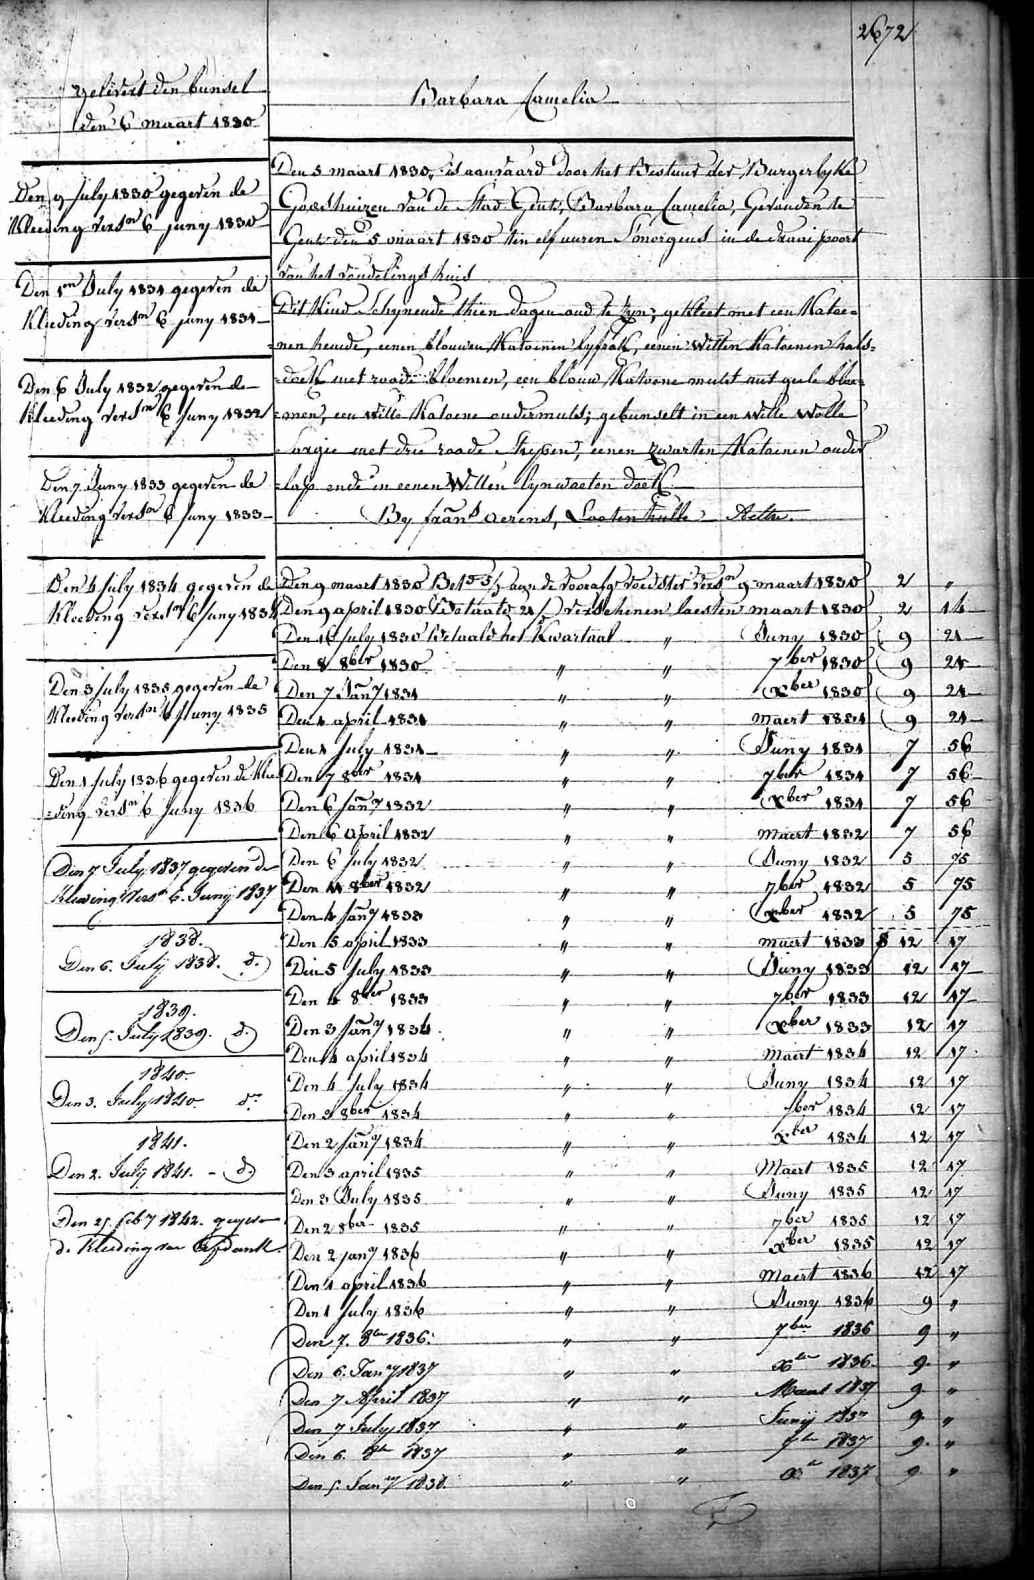 2672
gelevert den bunsel
den 6 maart 1830
Barbara Camelia
Den 9 July 1830 gegeven de
Kleeding versn 6 juny 1830
Den 1en July 1831 gegeven de
Kleeding versn 6 juny 1831
Den 6 July 1832 gegeven de
Kleeding versn 6 Juny 1832
Den 7 Juny 1833 gegeven de
Kleeding versn 6 Juny 1833
Den 4 July 1834 gegeven de
Kleeding versn 6 Juny 1834
Den 3 July 1835 gegeven de
Kleeding versn 6 Juny 1835
Den 1 July 1836 gegeven de Klee-
=ding versn 6 Juny 1836
Den 7 July 1837 gegeven de
Kleeding versn 6. Junij 1837
1838.
Den 6. Julij 1838. d.
1839.
Den 5. July 1839. d.
1840.
Den 3. July 1840. do
1841.
Den 2. Julij 1841. - d.
Den 25 feby 1842. gegeven
de Kleeding van
Den 5 maart 1830, is aanvaard door het Bestuur der Burgerlyke
Godshuizen van de Stad Gent, Barbara Camelia, Gevonden te
Gent den 5 maart 1830 ten elf uuren Smorgens in de draai poort
van het vondelings huis
Dit Kind Schynende thien dagen oud te zyn; gekleet met een Katoe=
=nen hemde, eenen blouwen Katoenen lyfrok, eenen witten Katoenen hals=
=doek met roode bloemen, een blouw Katoene muts met geele bloe=
=men, een witte Katoene ondermuts; gebunselt in een witte wolle
Sargie met drie roode strepen, eenen zwarten Katoenen onder
=lap ende in eenen Witten lynwaeten doek.
By frans Aerens, Lootenhulle Aeltre.
Den 9 maart 1830 Bet. aan de voedster versn 9 maart 1830 2 "
Den 9 april 1830 Betaald verschenen laesten maart 1830 2 14
Den 16 July 1830 Betaald het Kwartaal " Juny 1830 9 21
Den 8 8ber 1830 " " 7ber 1830 9 21
Den 7 Jany 1831 " " xber 1830 9 21
Den 1 april 1831 " " Maert 1831 9 21
Den 1 July 1831 " " Juny 1831 7 56
Den 7 8ber 1831 " " 7ber 1831 7 56
Den 6 Jany 1832 " " xber 1831 7 56
Den 6 April 1832 " " Maert 1832 7 56
Den 6 July 1832 " " Juny 1832 5 75
Den 11 8ber 1832 " " 7ber 1832 5 75
Den 4 Jany 1833 " " xber 1832 5 75
Den 5 april 1833 " " Maert 1833 12 17
Den 5 July 1833 " " Juny 1833 12 17
Den 4 8ber 1833 " " 7ber 1833 12 17
Den 3 Jany 1834 " " xber 1833 12 17
Den 4 april 1834 " " Maert 1834 12 17
Den 4 July 1834 " " Juny 1834 12 17
Den 3 8ber 1834 " " 7ber 1834 12 17
Den 2 Jany 1834 " " xber 1834 12 17
Den 3 april 1835 " " Maert 1835 12 17
Den 3 July 1835 " " Juny 1835 12 17
Den 2 8ber 1835 " " 7ber 1835 12 17
Den 2 jany 1836 " " xber 1835 12 17
Den 1 april 1836 " " Maert 1836 12 17
Den 1 July 1836 " " Juny 1836 9 "
Den 7. 8ber 1836. " " 7ber 1836 9 "
Den 6. Jany 1837 " " xber 1836 9 "
Den 7 April 1837 " " Maert 1837 9 "
Den 7 July 1837 " " Junij 1837 9 "
Den 6. 8br 1837 " " 7br 1837 9 "
Den 5. Jany 1838. " " xr 1837 9 "